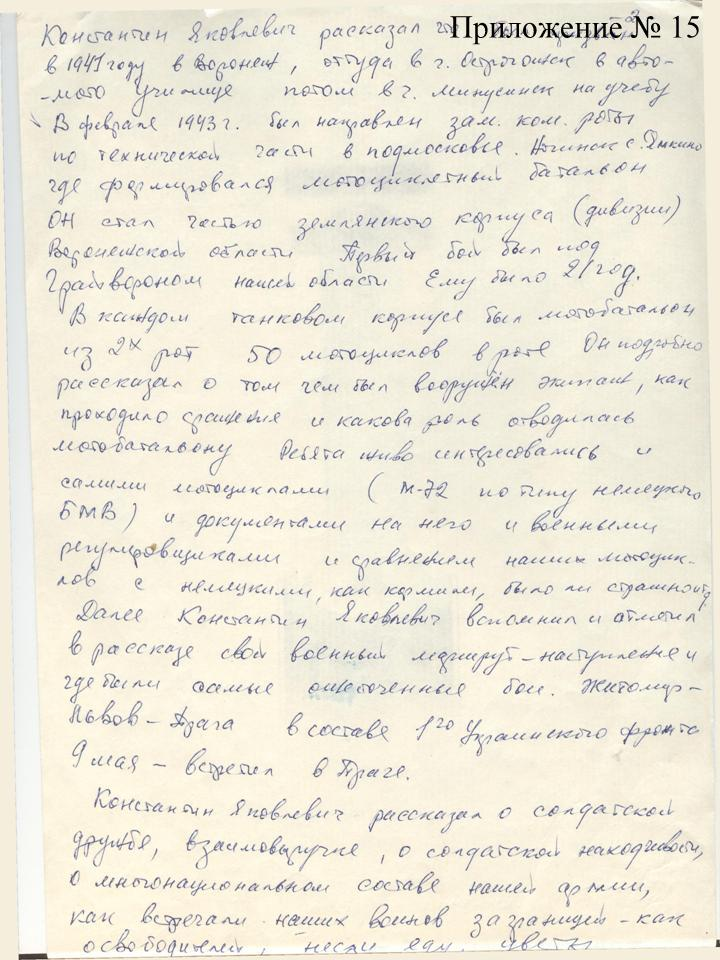 Приложение № 15
Константин Яковлевич рассказал что был призван
в 1941 году в Воронеж, оттуда в г. Острогожск в авто-
-мото училище потом в г. Минусинск на учёбу
В феврале 1943 г. был направлен зам. ком. роты
по технической части в подмосковье. Ногинск с. Ямкино
где формировался мотоциклетный батальон
Он стал частью землянского корпуса (дивизии)
Воронежской области Первый бой был под
Грайвороном нашей области Ему было 21 год.
В каждом танковом корпусе был мотобатальон
из 2х рот 50 мотоциклов в роте Он подробно
рассказал о том чем был вооружён экипаж, как
проходило сражение и какова роль отводилась
мотобатальону Ребята живо интересовались и
самими мотоциклами (М-72 по типу немецкого
БМВ) и документами на него и военными
регулировщиками и сравнением наших мотоцик-
лов с немецкими, как кормили, было ли страшно
Далее Константин Яковлевич вспомнил и отметил
в рассказе свой военный маршрут-наступление и
где были самые ожесточенные бои. Житомир-
Львов-Прага в составе 1го Украинского фронта
9 мая - встретил в Праге.
Константин Яковлевич рассказал о солдатской
дружбе, взаимовыручке, о солдатской находчивости,
о многонациональном составе нашей армии,
как встречали наших воинов за границей - как
освободителей, несли цветы